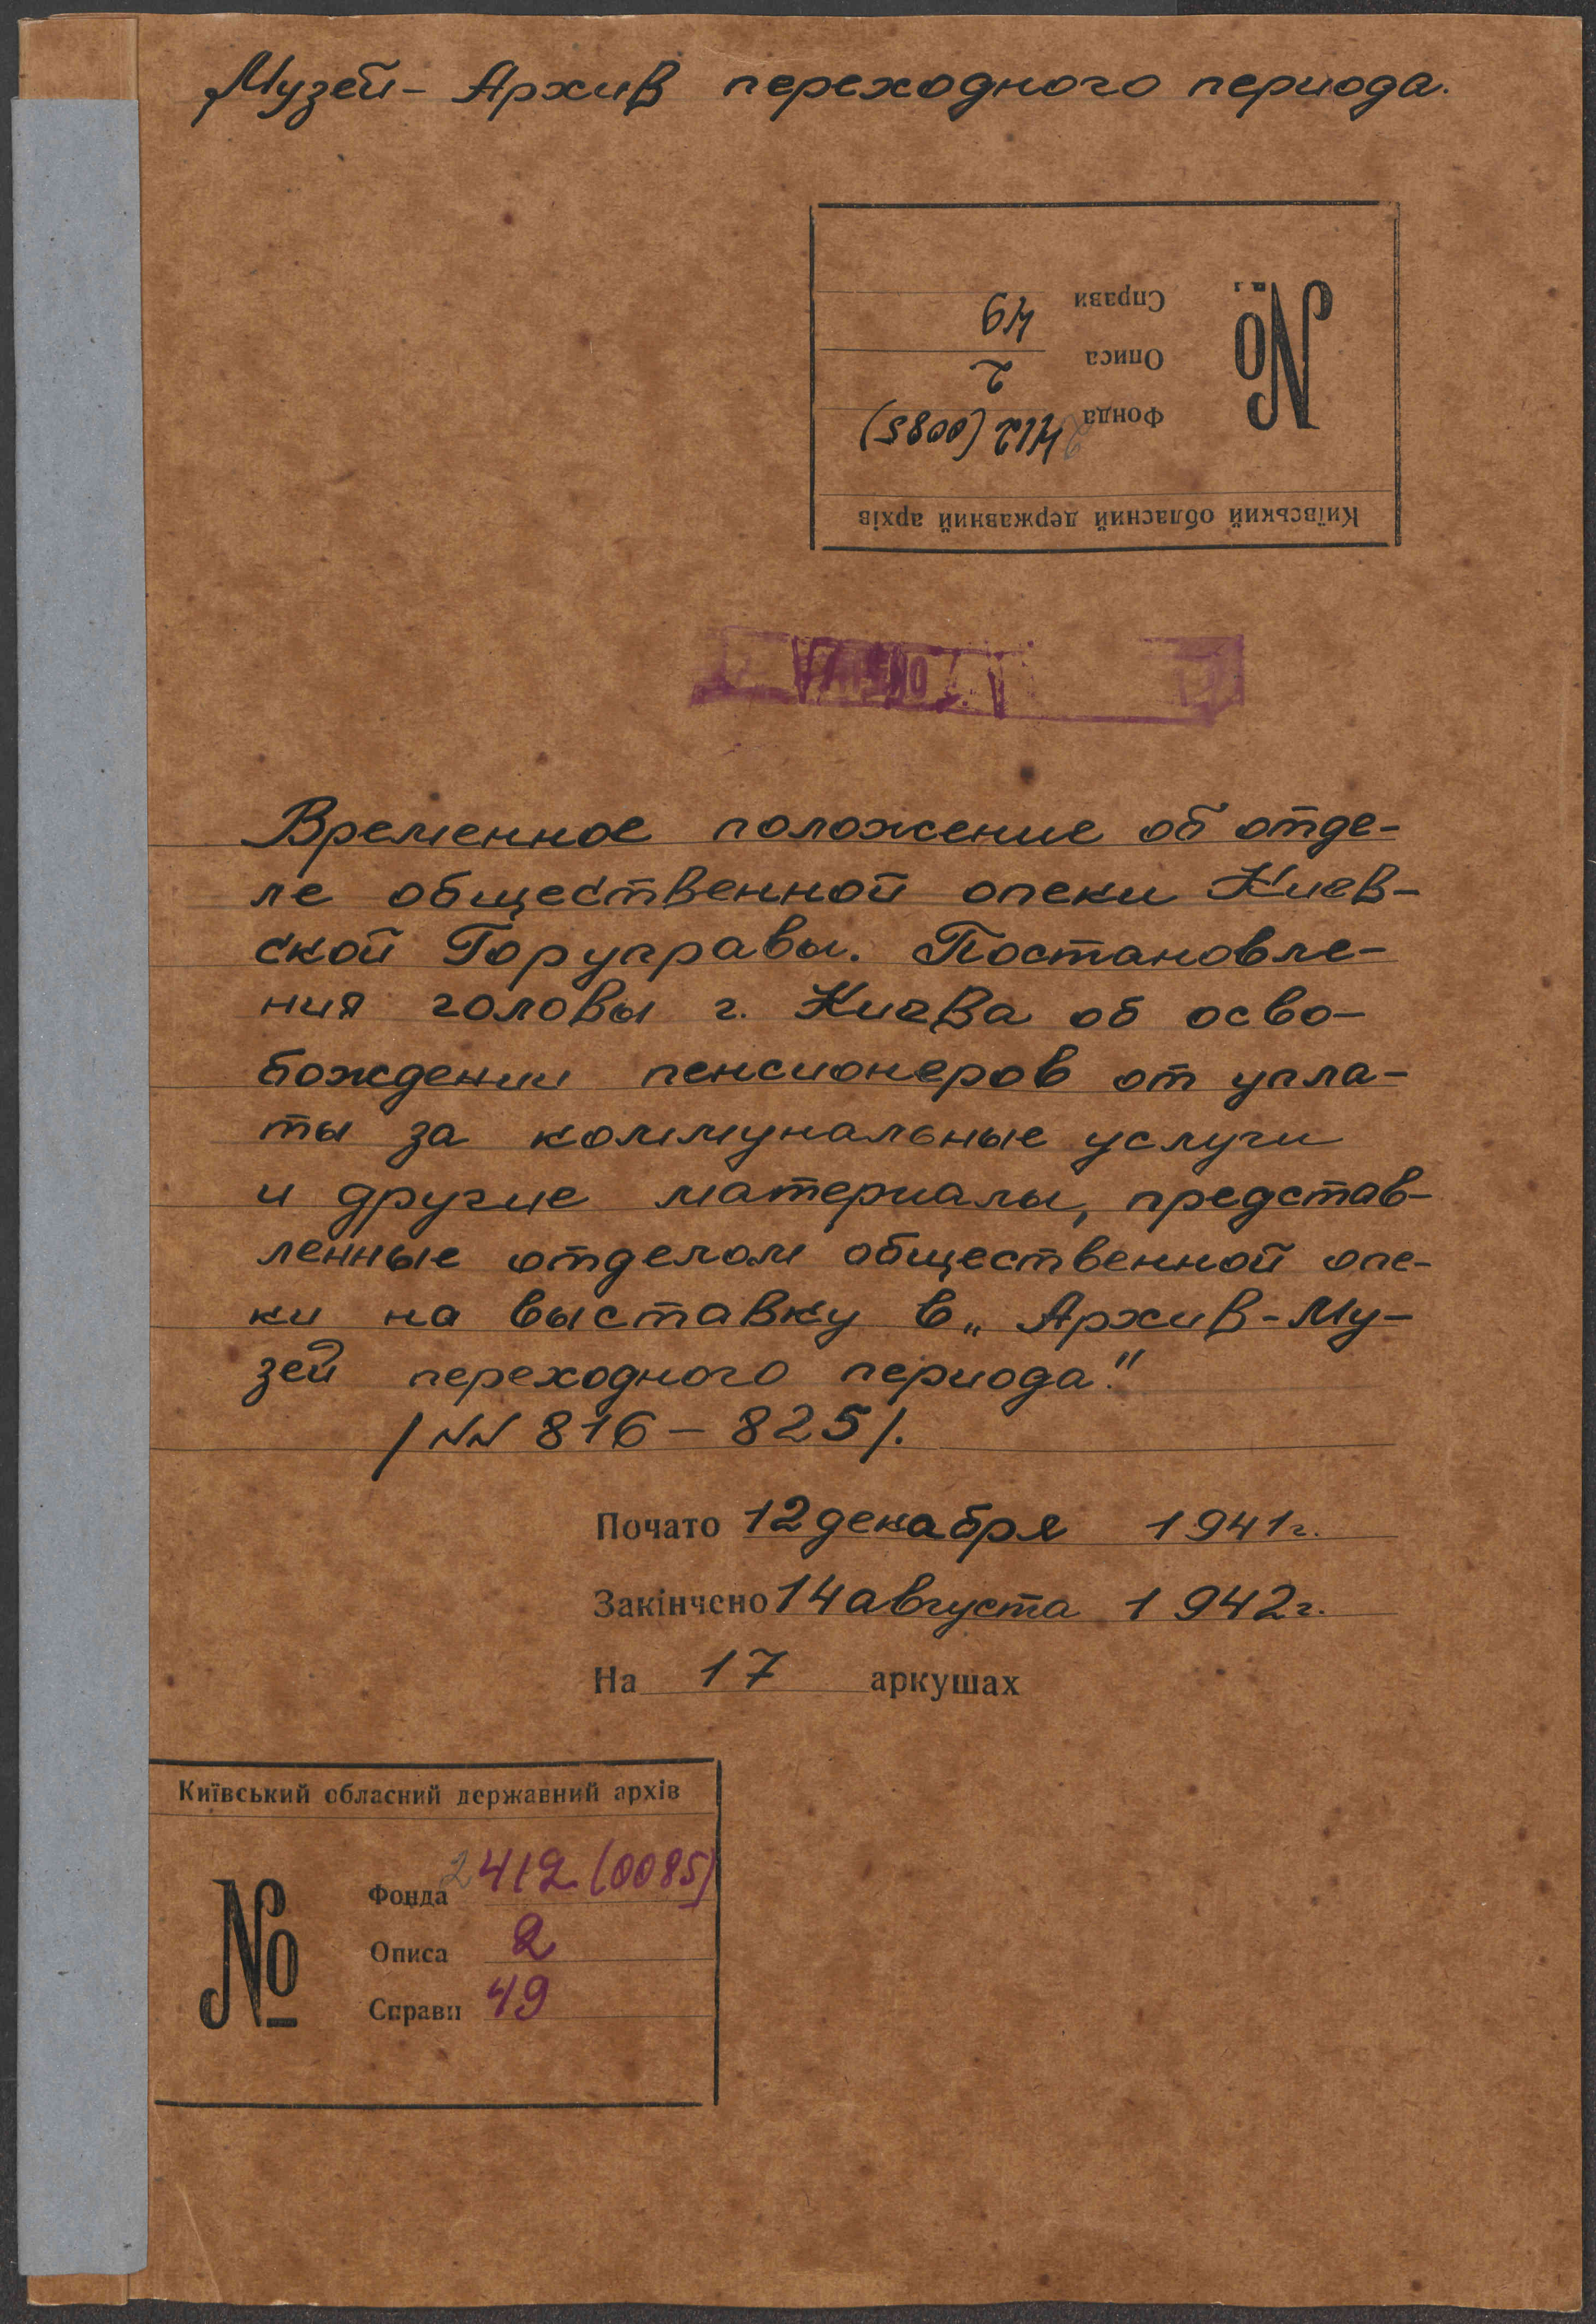 Музей - Архив переходного периода.
Київський обласний державний архів
№
Фонда 2412 (0085)
Описа 2
Справи 49
Временное положение об отде-
ле общественной опеки Киев-
ской Горуправы. Постановле-
ния головы г. Киева об осво-
бождении пенсионеров от упла-
ты за коммунальные услуги
и другие материалы, представ-
ленные отделом общественной опе-
ки на выставку в „Архив-Му-
зей переходного периода".
/NN 816 - 825/.
Почато 12 декабря 1941 г.
Закінчено 14 августа 1942 г.
На 17 аркушах
Київський обласний державний архів
№
Фонда 2412 (0085)
Описа 2
Справи 49